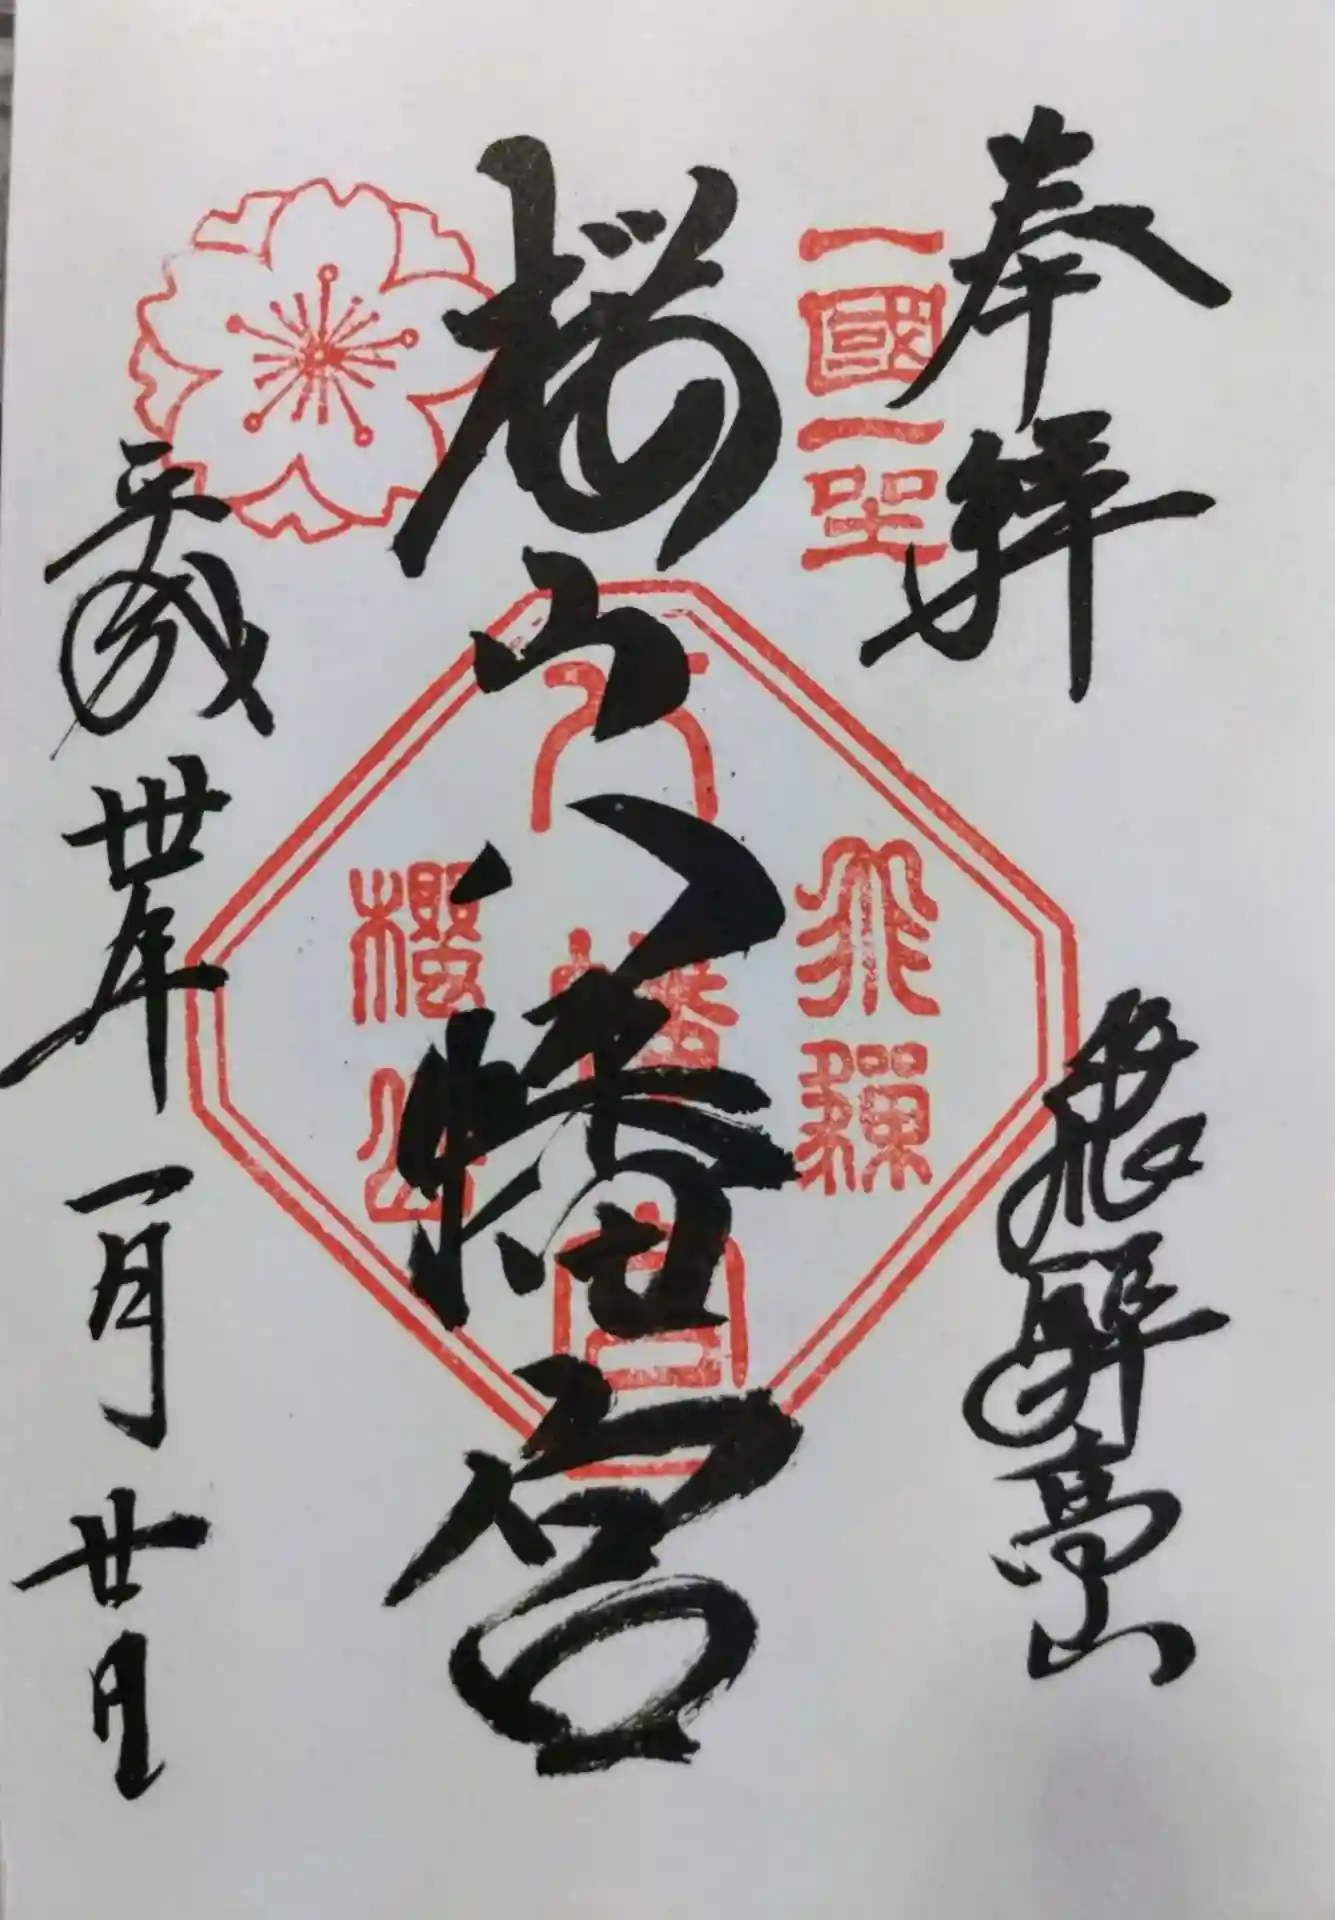 奉拝
飛騨高山
一國一
桜山八幡宮
飛騨
八幡宮
櫻山
平成丗年一月廿日